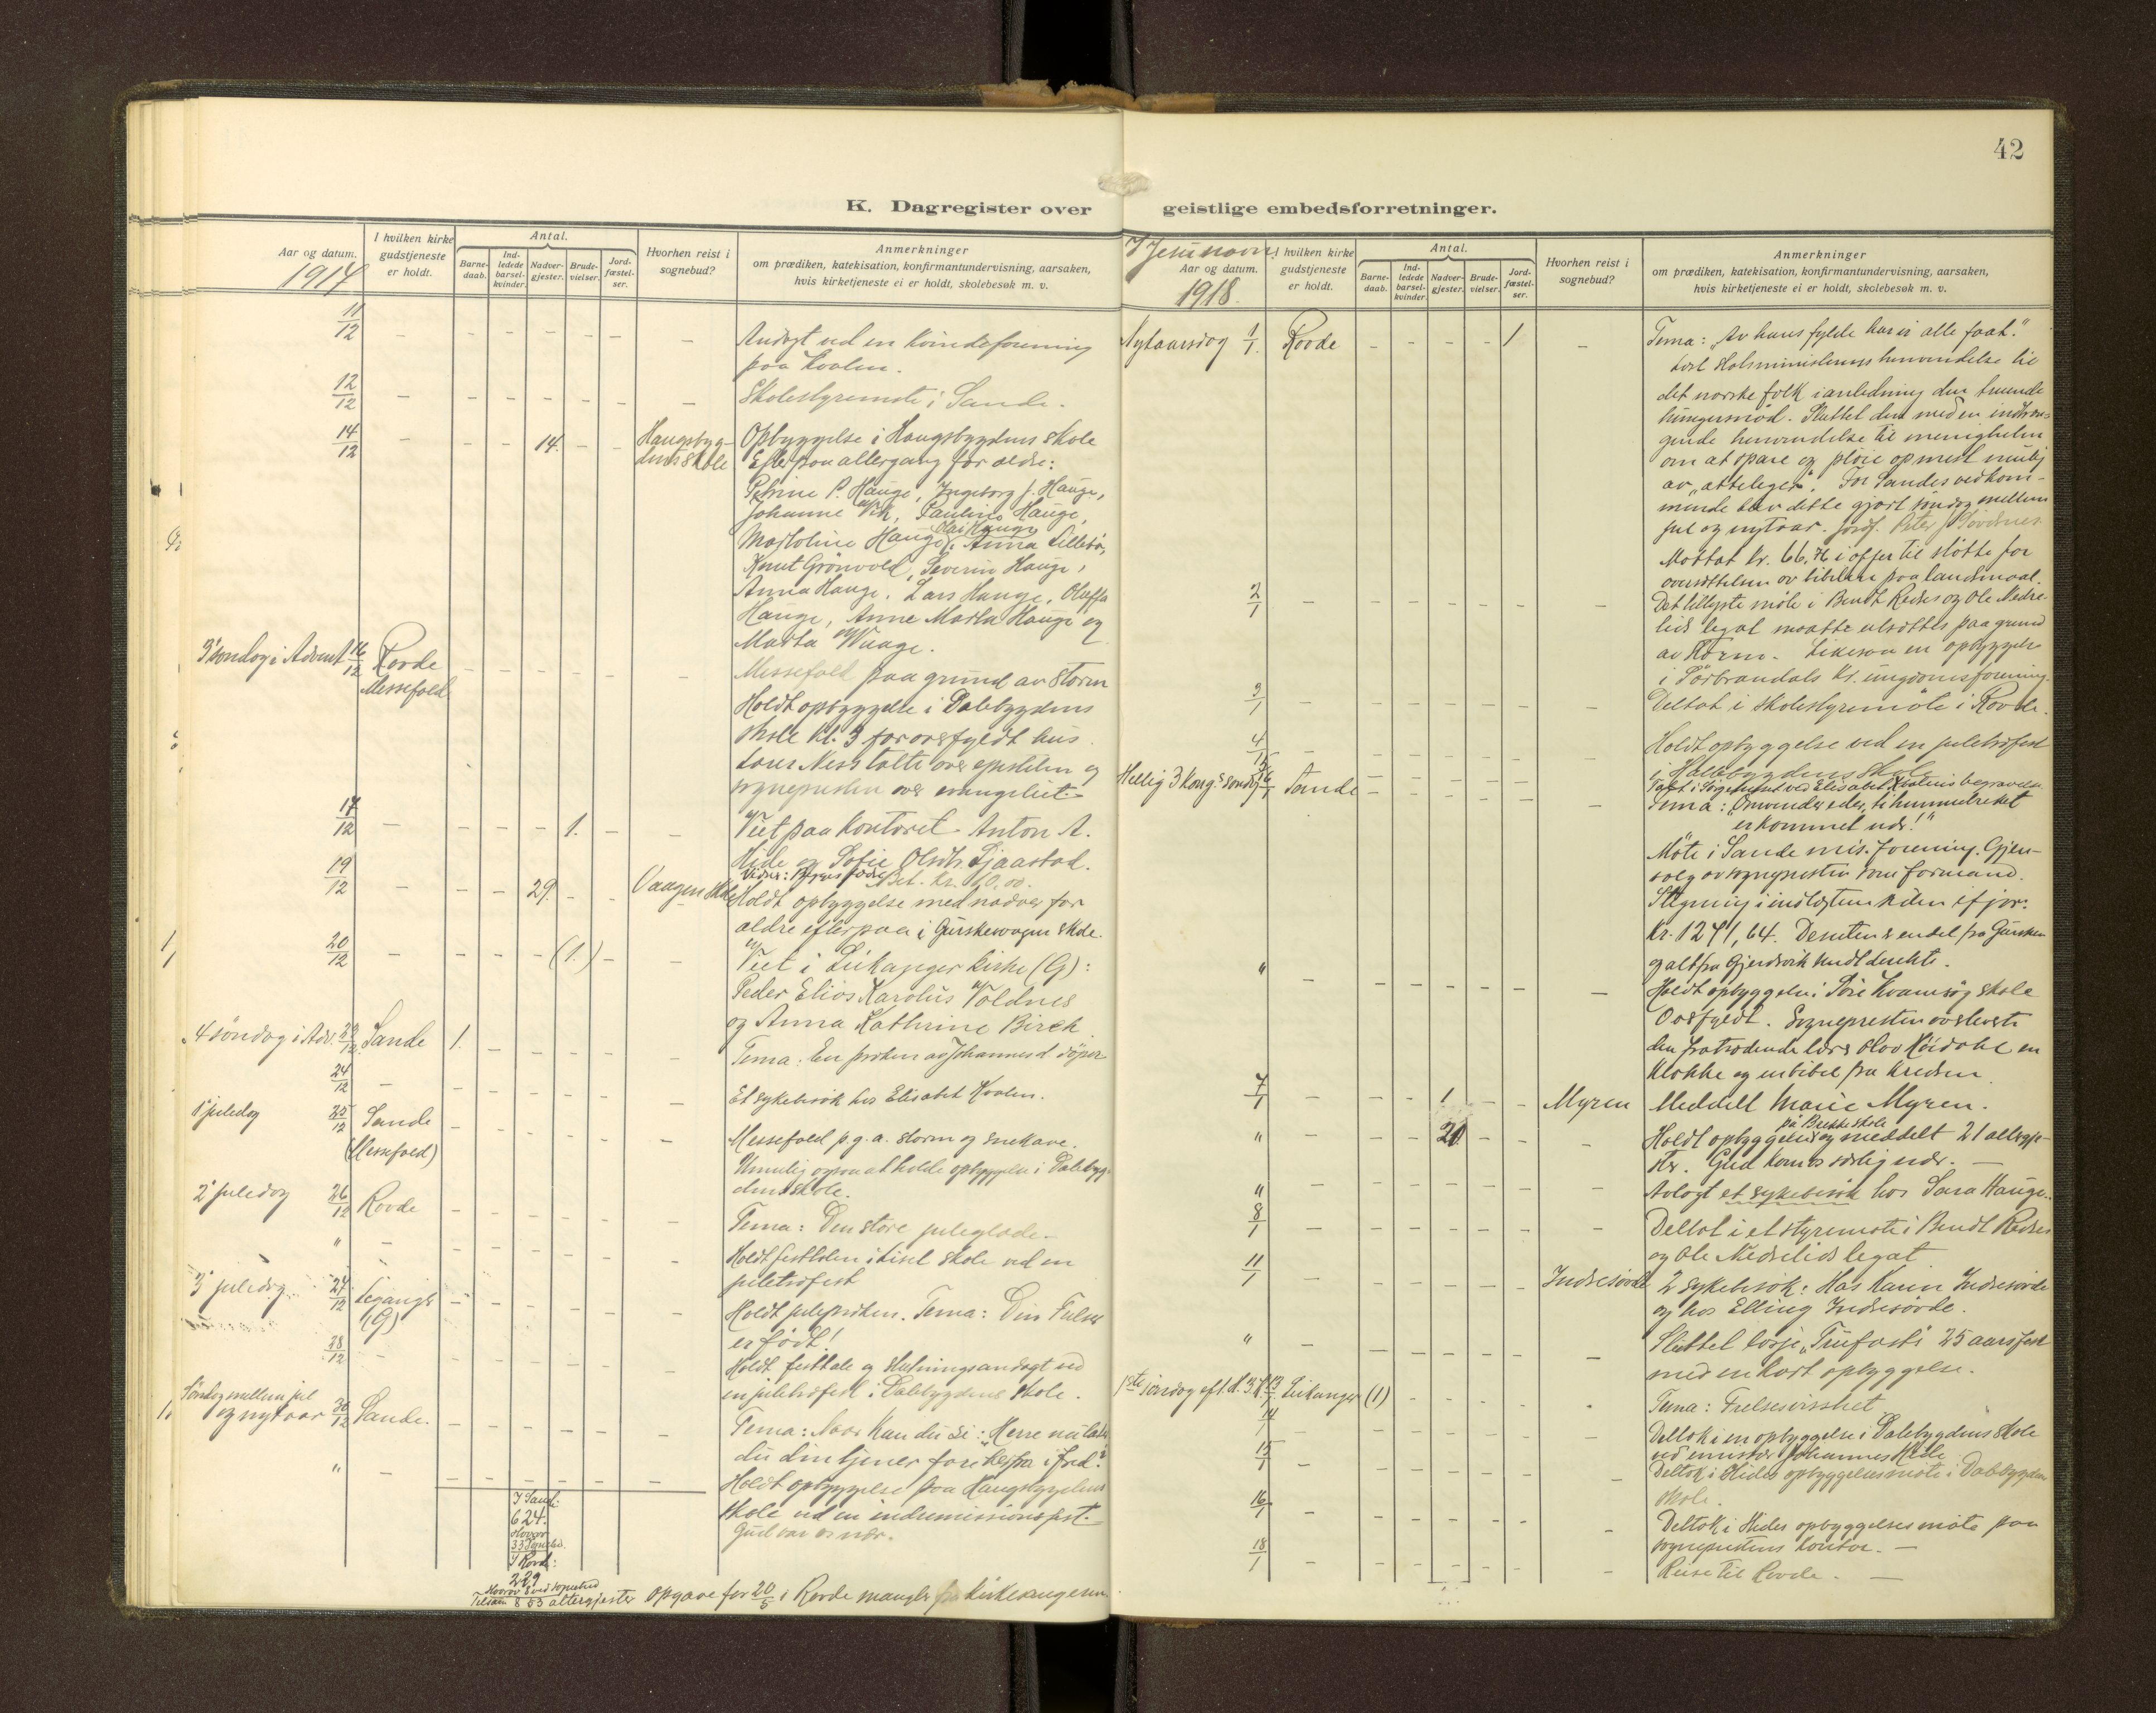 42
K. Dagregister over geistlige embedsforretninger.
Aar og datum.
1917
I hvilken kirke gudstjeneste er holdt.
Antal.
Barne-daab.
Ind-ledede barsel-kvinder.
Nadver-gjester.
Brude-vielser.
Jord-fæstel-ser.
Hvorhen reist i sognebud?
Anmerkninger
om prædiken, katekisation, konfirmantundervisning, aarsaken,
hvis kirketjeneste ei er holdt, skolebesøk m. v.
11/12 Andagt ved en kvindeforening
paa Kvalen.
12/12 Skolestyremøte i Sande.
14/12 14. Haugsbyg-
dens skole
Opbyggelse i Haugsbygdens skole
Efterpaa altergang for ældre:
Petrine P. Hauge, Ingeborg J. Hauge,
Johanne Vik, Pauline Hauge,
Olai Hauge
Hauge, Anna Lillebø,
Knut Grönvold, Severin Hauge,
Anna Hauge, Lars Hauge, Oluffa
Hauge, Anne Marta Hauge og
Marta Waage.
3 søndag i Advent 16/12 Rovde
Messefald
Messefald paa grund av storm
Holdt opbyggelse i Dalebygdens
skole kl. 3 for overfyldt hus.
Lars Ness talte over epistelen og
sognepresten over evangeliet.
17/12 1. Viet paa kontoret Anton A.
Hide og Sofie Olsdtr. Sjaastad.
Bet. kr. 10,00.
19/12 29. Vaagen skole
Holdt opbyggelse med nadver for
ældre efterpaa i Gurskevaagen skole.
20/12 (1.) Viet i Leikanger kirke (G):
Peder Elias Karolus Voldnes
og Anna Kathrine Birch.
4 søndag i Adv. 23/12 Sande 1.
Tema: En prøken av Johannes d. döper
24/12 Et sykebesøk hos Elisabet Kvalen.
1 juledag 25/12 Sande
(Messefald)
Messefald p.g.a. storm og snekave.
Umulig ogsaa at holde opbyggelse i Dalebyg-
dens skole.
2 juledag 26/12 Rovde
Tema: Den store juleglæde.
" Holdt festtalen i Liset skole ved en
juletræfest
3 juledag 27/12 Leganger
(G)
Holdt julepræken. Tema: Din Frelser
er født!
28/12 Holdt festtale og slutningsandagt ved
en juletræfest i Dalebygdens skole.
Søndag mellem jul
og nytaar 30/12 Sande.
Tema: Naar kan du si: Herre nu lader
du din tjener fare herfra i fred?
" Holdt opbyggelse paa Haugsbygdens
skole ved en indremissionsfest.
Gud var os nær.
I Sande:
624.
Herav
33
I Rovde:
229
Herav 8 ved sognebud
Tilsam 853 altergjester
Opgave for 20/5 i Rovde mangler fra kirkesangeren.
I Jesu navn!
Aar og datum.
1918.
I hvilken kirke gudstjeneste er holdt.
Antal.
Barne-daab.
Ind-ledede barsel-kvinder.
Nadver-gjester.
Brude-vielser.
Jord-fæstel-ser.
Hvorhen reist i sognebud?
Anmerkninger
om prædiken, katekisation, konfirmantundervisning, aarsaken,
hvis kirketjeneste ei er holdt, skolebesøk m. v.
Nytaarsdag 1/1. Rovde 1
Tema: "Av hans fylde har vi alle faat."
Læst Statsministerens henvendelse til
det norske folk i anledning den truende
hungersnød. Sluttet den med en indtræn-
gende henvendelse til menigheten
om at spare og pløie op mest mulig
av "atteleger". For Sandes vedkom-
mende blev dette gjort søndag mellem
jul og nytaar. Jordf. Peter J.
Mottat kr. 66, i offer til støtte for
oversættelsen av bibelen paa landsmaal.
2/1 Det tillyste møte i Bendt Rødses og Ole Nedre-
lids legat maatte utsættes paa grund
av storm. Likesaa en opbyggelse
i Sørbrandals kr. ungdomsforening.
3/1 Deltat i skolestyremøte i Rovde.
4/1 Holdt opbyggelse ved en juletræfest
i Hallebygdens skole
5/1 Talt i Sørgehuset ved Elisabet Kvalens begravelse
Hellig 3 kong. søndag 6/1 Sande
Tema: "Omvender eder, ti himmelriket
er kommet nær!"
Møte i Sande mis. forening. Gjen-
valg av sognepresten som formand.
Stigning i indtægtene siden ifjor:
Kr. 1241,64. Desuten endel fra Gursken
og alt fra Gjerdsvik sendt direkte.
" Holdt opbyggelse i Søre Kvamsøy skole
Overfyldt. Sognepresten overleverte
den fratrædende lærer Olav Röidahl en
klokke og en bibel fra kredsen.
7/1 1 Myren
Meddelt Marie Myren.
" 20
paa Brekke skole
Holdt opbyggelse og meddelt 21 altergje-
ster. Gud kom os særlig nær.
" Avlagt et sykebesøk hos Sara Hauge.
8/1 Deltat i et styremøte i Bendt Rødses
og Ole Nedrelids legat
11/1 Indresövde
2 sykebesøk: Hos Karen Indresövde
og hos Elling Indresövde.
" Sluttet losje "Trufasts" 25 aarsfest
med en kort opbyggelse.
1ste søndag eft. H. 3 K. 13/1 Leikanger (1)
Tema: Frelsesvisshet
14/1 Deltok i en opbyggelse i Dalebygdens skole
ved emissær Johannes Hide
15/1 Deltok i Hides opbyggelsesmøte i Dalebygdens
skole.
16/1 Deltok i Hides opbyggelsesmøte paa
sognepresten kontor.
18/1 Reise til Rovde.